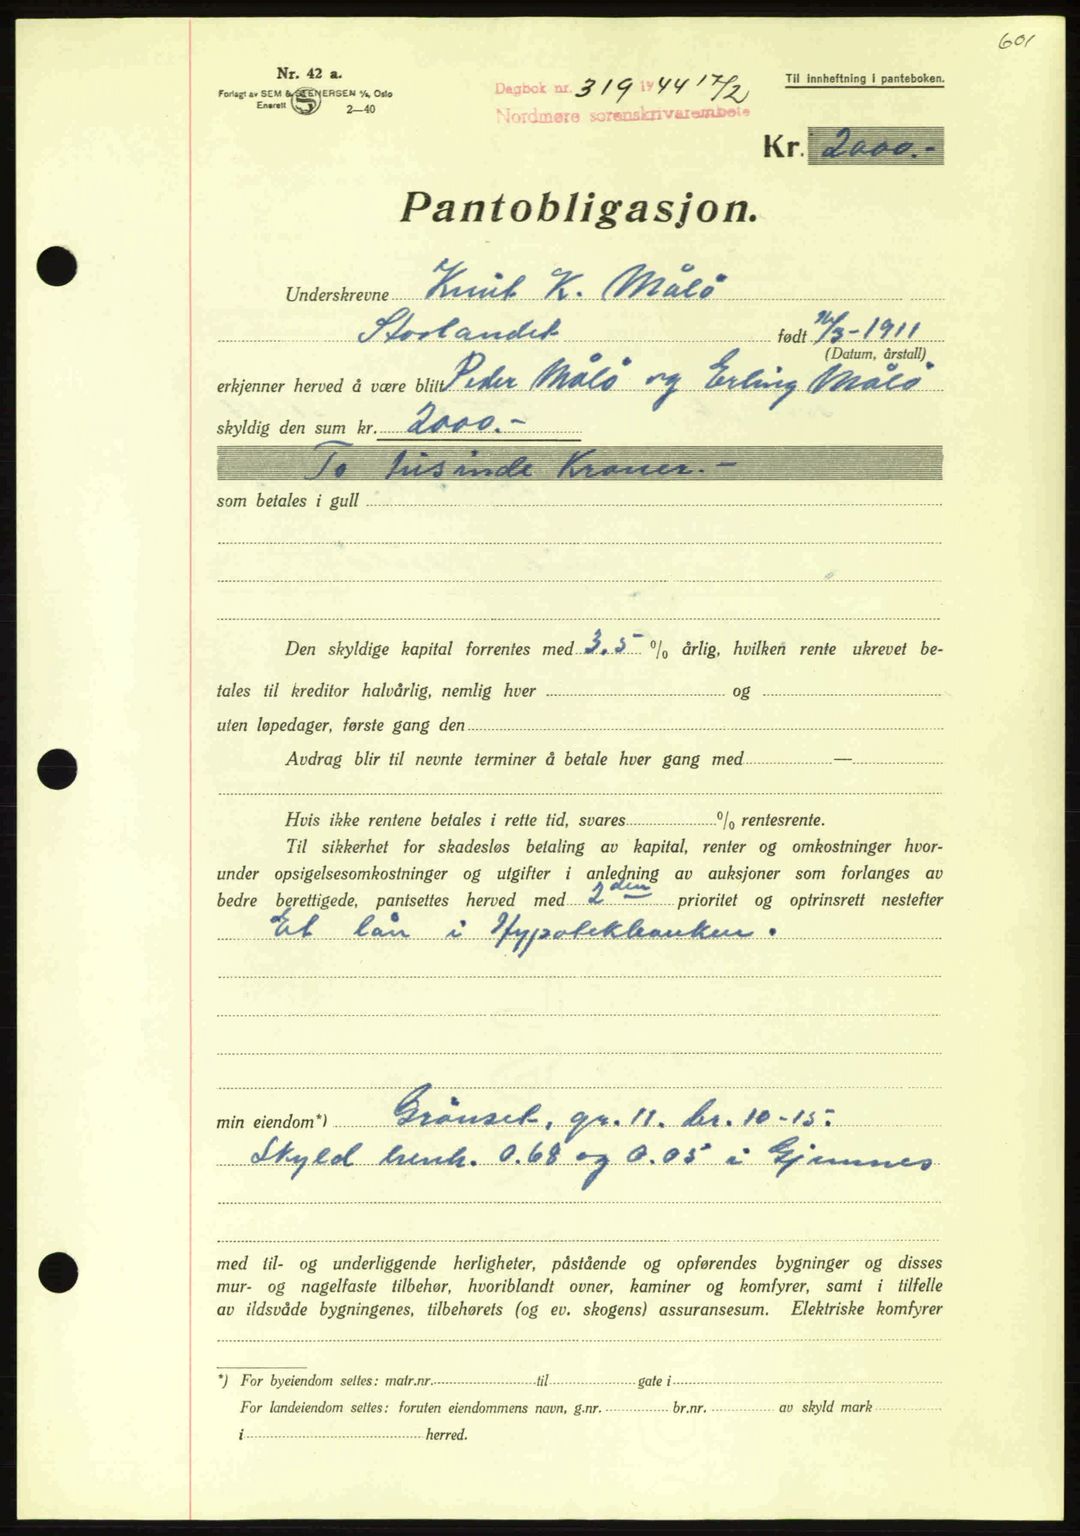 601
Nr. 42 a.
Forlagt av SEM & STENERSEN A/S, Oslo
Enerett S 2-40
Dagbok nr. 319 1944 17/2
Nordmøre sorenskriverembete
Til innheftning i panteboken.
Kr. 2000.-
Pantobligasjon.
Underskrevne Knut K. Målö
Storlandet født /3-1911
(Datum, årstall)
erkjenner herved å være blitt Peder Målö og Erling Målö
skyldig den sum kr. 2000.-
To tusinde Kroner.-
som betales i gull
Den skyldige kapital forrentes med 3.5 % årlig, hvilken rente ukrevet be-
tales til kreditor halvårlig, nemlig hver og
uten løpedager, første gang den
Avdrag blir til nevnte terminer å betale hver gang med —
Hvis ikke rentene betales i rette tid, svares % rentesrente.
Til sikkerhet for skadesløs betaling av kapital, renter og omkostninger hvor-
under opsigelsesomkostninger og utgifter i anledning av auksjoner som forlanges av
bedre berettigede, pantsettes herved med 2den prioritet og optrinsrett nestefter
Et lån i Hypotekbanken.
min eiendom*) Grönset, gr. 11. br. 10-15.
Skyld henh. 0.68 og 0.05 i Gjemnes
med til- og underliggende herligheter, påstående og opførendes bygninger og disses
mur- og nagelfaste tilbehør, hvoriblandt ovner, kaminer og komfyrer, samt i tilfelle
av ildsvåde bygningenes, tilbehørets (og ev. skogens) assuransesum. Elektriske komfyrer
*) For byeiendom settes: matr.nr. til gate i
For landeiendom settes: foruten eiendommens navn, g.nr. br.nr. av skyld mark
i herred.